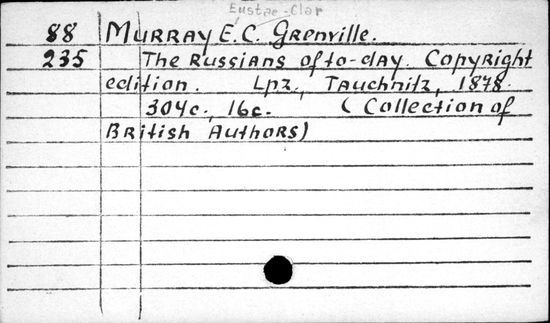 Eustae-Clar
88 MURRAY E.C. Grenville.
235 The Russians of to-day. Copyright
edition. Lpz., Tauchnitz, 1878.
304c., 16c. (Collection of
British Authors)